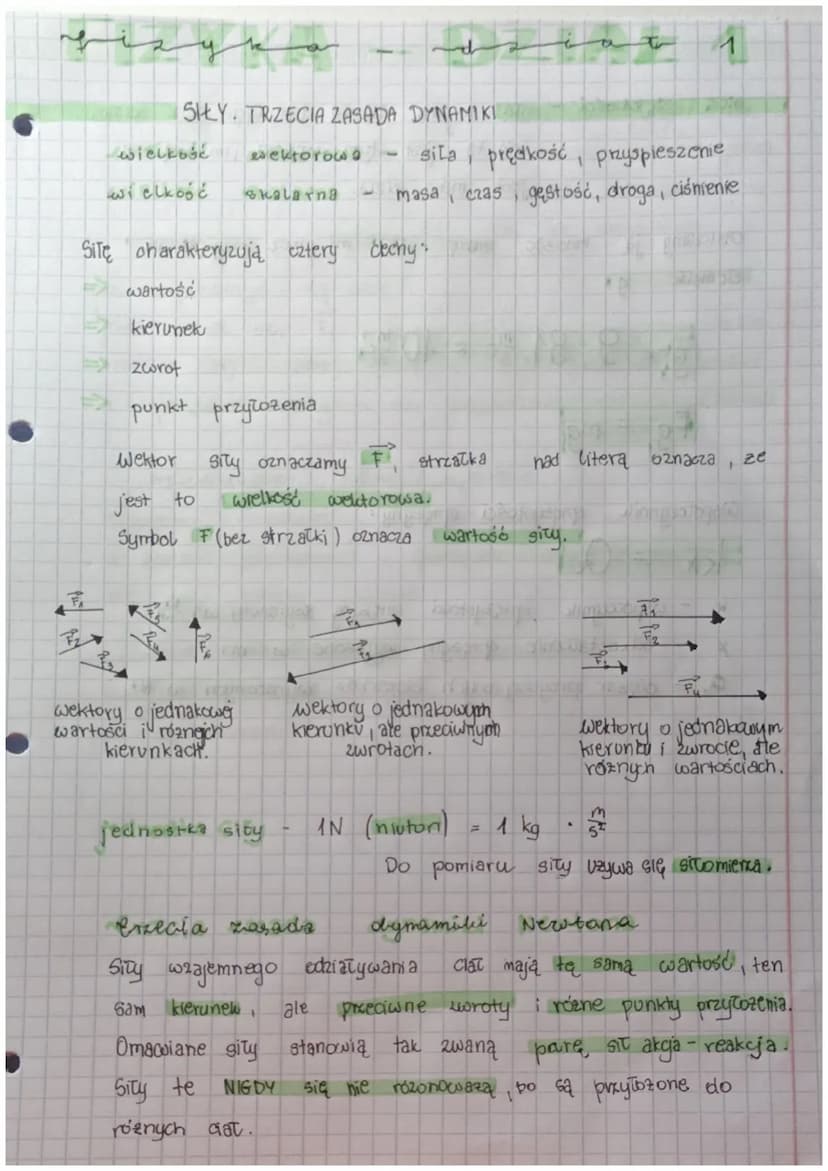 fizyka - dział 1
SIŁY. TRZECIA ZASADA DYNAMIKI
wielkość wektorowa - siła, prędkość, przyspieszenie
wielkość skalarna - masa, czas, gęstość, droga, ciśnienie
Siłę charakteryzują cztery cechy:
⇒ wartość
⇒ kierunek
⇒ zwrot
⇒ punkt przyłożenia
Wektor siły oznaczamy F⃗, strzałka nad literą oznacza, że
jest to wielkość wektorowa.
Symbol F (bez strzałki) oznacza wartość siły.
F⃗₁ F⃗₅ F⃗₂ F⃗₄ F⃗₆ F⃗₃
F⃗₁ F⃗₂
F⃗₁ F⃗₂ F⃗₃ F⃗₄
wektory o jednakowej
wartości i różnych
kierunkach.
wektory o jednakowym
kierunku, ale przeciwnych
zwrotach.
wektory o jednakowym
kierunku i zwrocie, ale
różnych wartościach.
jednostka siły - 1N (niuton) = 1 kg · m/s²
Do pomiaru siły używa się siłomierza.
trzecia zasada dynamiki Newtona
Siły wzajemnego oddziaływania ciał mają tę samą wartość, ten
sam kierunek, ale przeciwne zwroty i różne punkty przyłożenia.
Omawiane siły stanowią tak zwaną parę sił akcja - reakcja.
Siły te NIGDY się nie równoważą, bo są przyłożone do
różnych ciał.